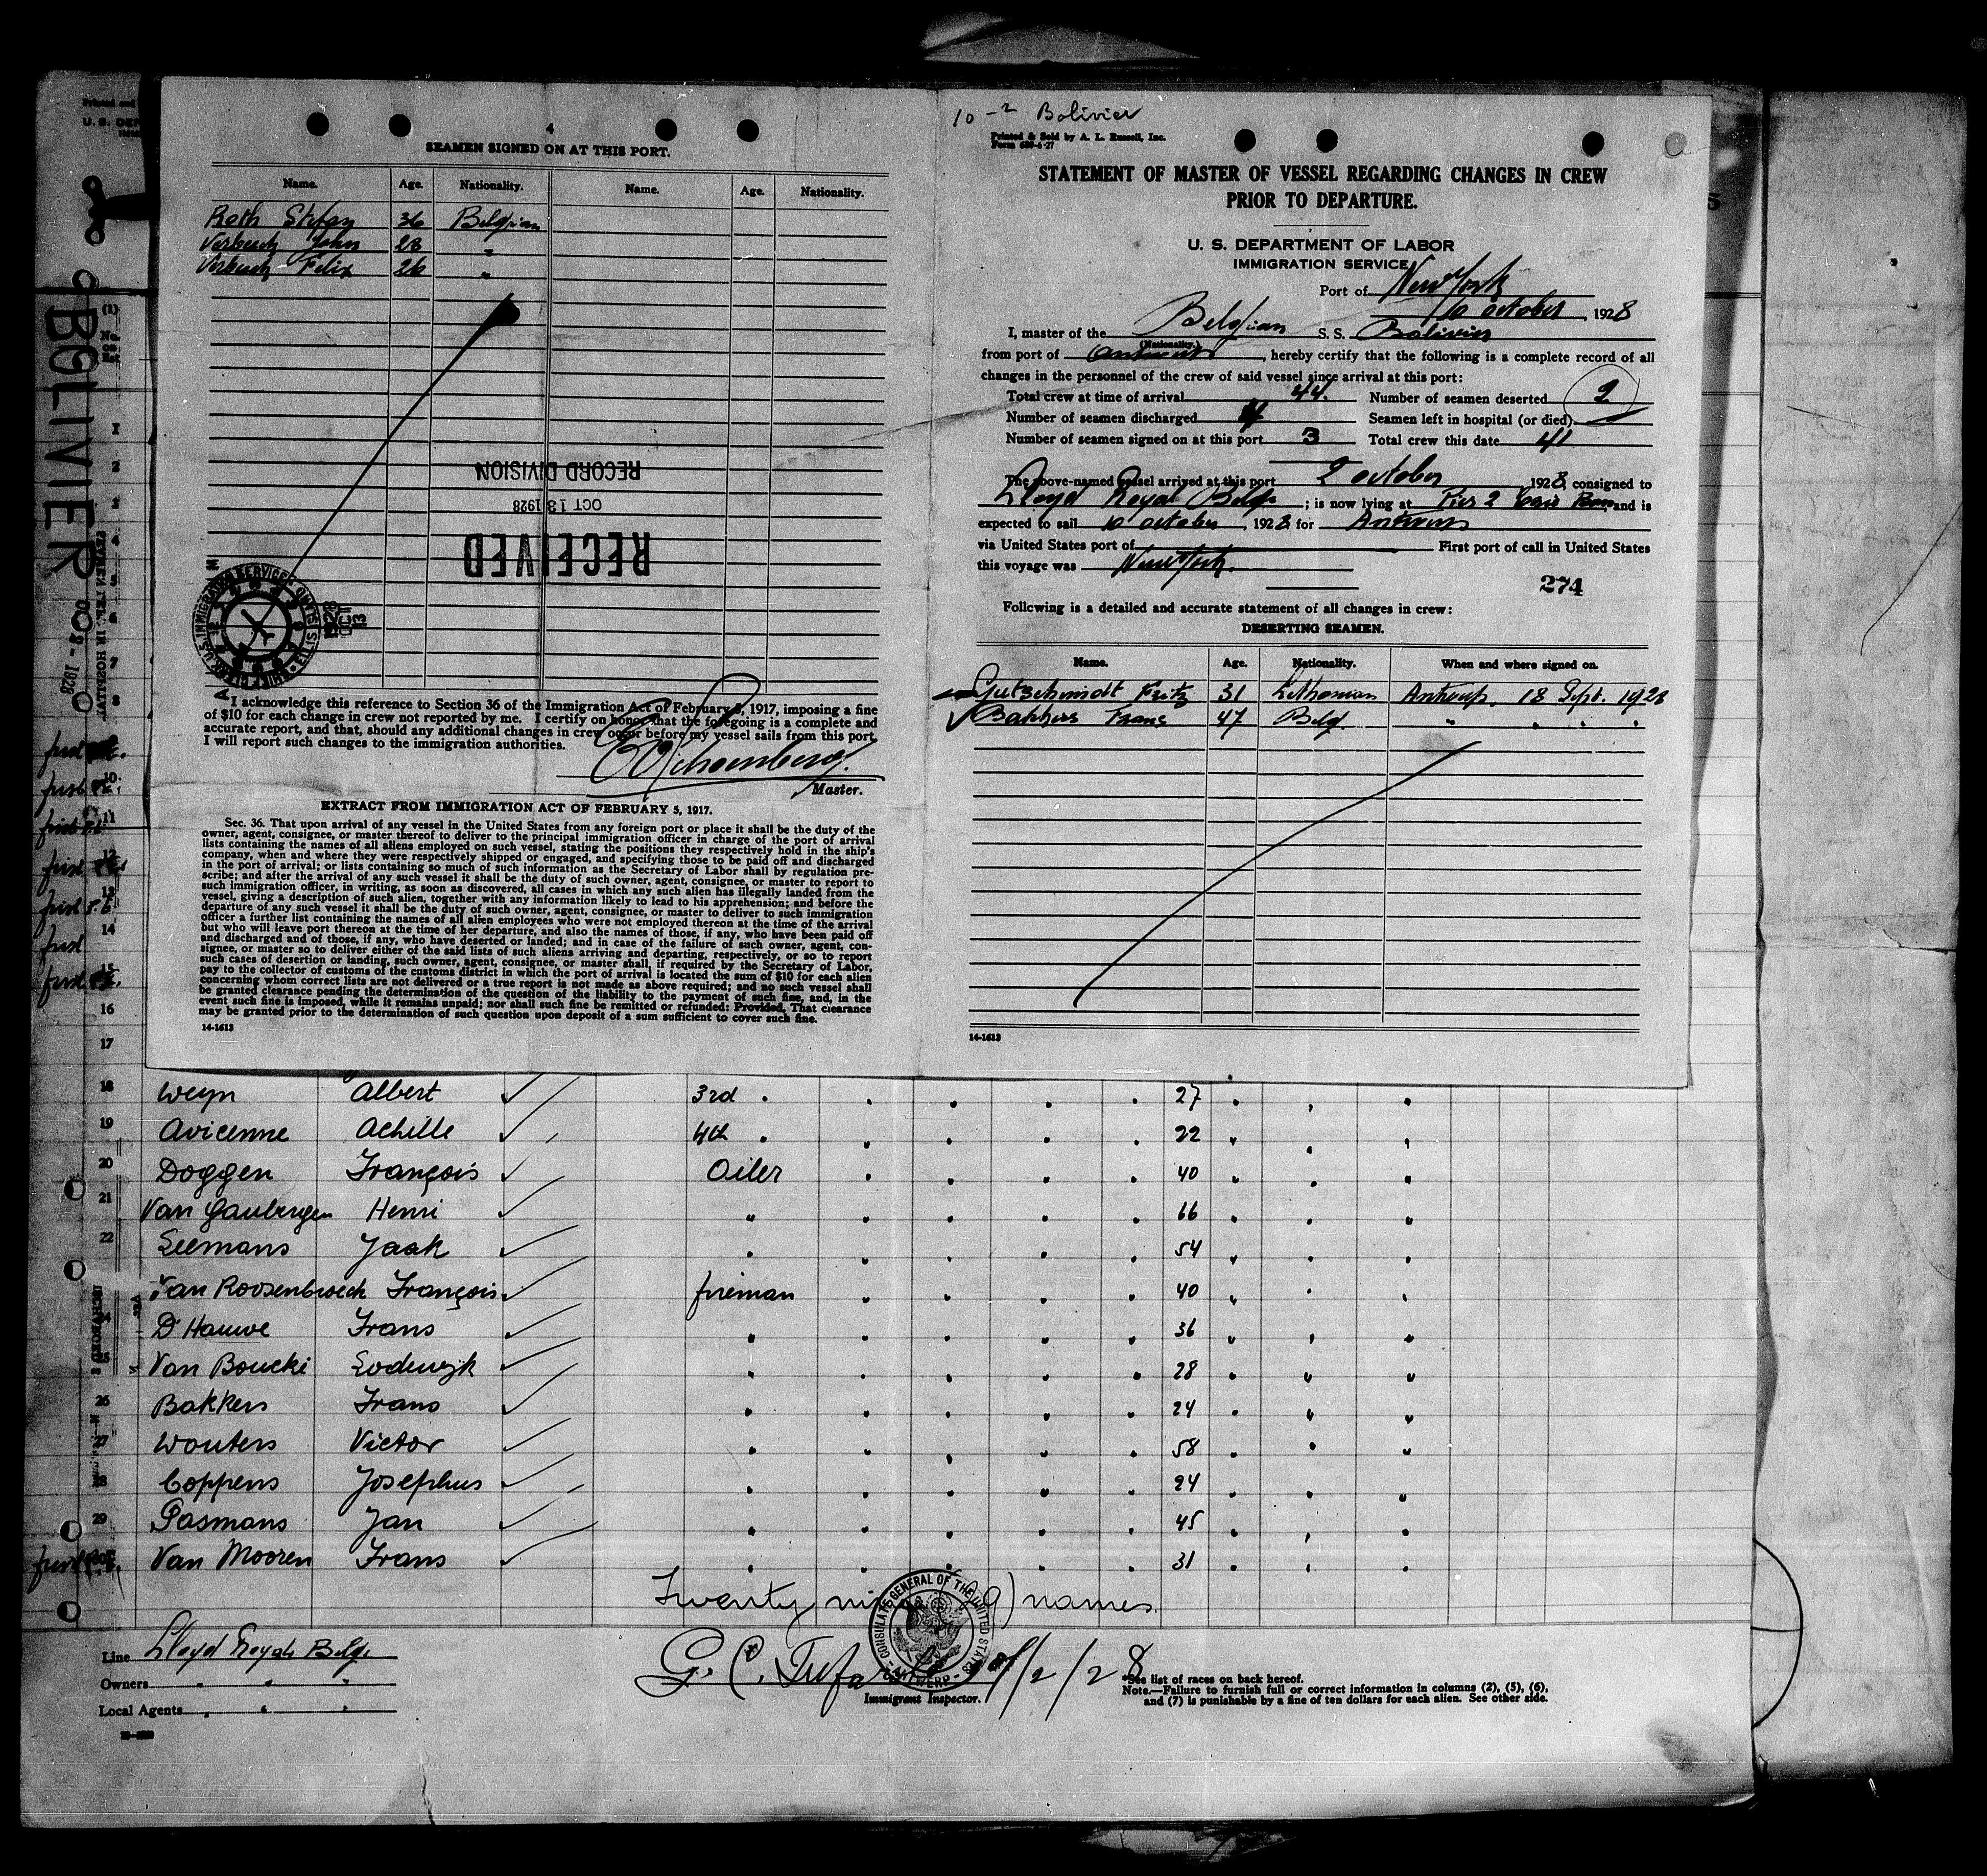 4
SEAMEN SIGNED ON AT THIS PORT.
Name. Age. Nationality. Name. Age. Nationality.
Roth Stefan 36 Belgian
John 28 "
Felix 26 "
RECORD DIVISION
OCT 13 1928
RECEIVED
I acknowledge this reference to Section 36 of the Immigration Act of February 5, 1917, imposing a fine
of $10 for each change in crew not reported by me. I certify on honor that the foregoing is a complete and
accurate report, and that, should any additional changes in crew occur before my vessel sails from this port,
I will report such changes to the immigration authorities.
Master.
EXTRACT FROM IMMIGRATION ACT OF FEBRUARY 5, 1917.
Sec. 36. That upon arrival of any vessel in the United States from any foreign port or place it shall be the duty of the
owner, agent, consignee, or master thereof to deliver to the principal immigration officer in charge of the port of arrival
lists containing the names of all aliens employed on such vessel, stating the positions they respectively hold in the ship's
company, when and where they were respectively shipped or engaged, and specifying those to be paid off and discharged
in the port of arrival; or lists containing so much of such information as the Secretary of Labor shall by regulation pre-
scribe; and after the arrival of any such vessel it shall be the duty of such owner, agent, consignee, or master to report to
such immigration officer, in writing, as soon as discovered, all cases in which any such alien has illegally landed from the
vessel, giving a description of such alien, together with any information likely to lead to his apprehension; and before the
departure of any such vessel it shall be the duty of such owner, agent, consignee, or master to deliver to such immigration
officer a further list containing the names of all alien employees who were not employed thereon at the time of the arrival
but who will leave port thereon at the time of her departure, and also the names of those, if any, who have been paid off
and discharged and of those, if any, who have deserted or landed; and in case of the failure of such owner, agent, con-
signee, or master so to deliver either of the said lists of such aliens arriving and departing, respectively, or so to report
such cases of desertion or landing, such owner, agent, consignee, or master shall, if required by the Secretary of Labor,
pay to the collector of customs of the customs district in which the port of arrival is located the sum of $10 for each alien
concerning whom correct lists are not delivered or a true report is not made as above required; and no such vessel shall
be granted clearance pending the determination of the question of the liability to the payment of such fine, and, in the
event such fine is imposed, while it remains unpaid; nor shall such fine be remitted or refunded: Provided, That clearance
may be granted prior to the determination of such question upon deposit of a sum sufficient to cover such fine.
14-1613
10-2 Bolivier
Printed & Sold by A. L. Russell, Inc.
Form 689-6-27
STATEMENT OF MASTER OF VESSEL REGARDING CHANGES IN CREW
PRIOR TO DEPARTURE.
U. S. DEPARTMENT OF LABOR
IMMIGRATION SERVICE
Port of New York
10 october, 1928
I, master of the Belgian S. S. Bolivier
(Nationality.)
from port of Antwerp, hereby certify that the following is a complete record of all
changes in the personnel of the crew of said vessel since arrival at this port:
Total crew at time of arrival 44. Number of seamen deserted 2
Number of seamen discharged 4 Seamen left in hospital (or died)
Number of seamen signed on at this port 3 Total crew this date 41
The above-named vessel arrived at this port 2 october 1928, consigned to
Lloyd Royal Belge; is now lying at Pier 2 and is
expected to sail 10 october, 1928 for Antwerp
via United States port of First port of call in United States
this voyage was New York.
274
Following is a detailed and accurate statement of all changes in crew:
DESERTING SEAMEN.
Name. Age. Nationality. When and where signed on.
Gutschmidt Fritz 31 Lithonian Antwerp. 18 Sept. 1928
Bakkers Frans 47 Belg. " " " "
14-1613
BOLIVIER
OCT 2 - 1928
18 Weyn Albert 3rd " 27
19 Avicenne Achille 4th " 22
20 Doggen François Oiler 40
21 Van Gaubergen Henri " 66
22 Seemans Jaak " 54
Van Roosenbroeck François fireman 40
24 D'Hauwe Frans " 36
25 Van Boucki Lodewijk " 28
26 Bakkers Frans " 24
27 Wouters Victor " 58
28 Coppens Josephus " 24
29 Pasmans Jan " 45
30 Van Mooren Frans " 31
Twenty nine (29) names.
CONSULATE GENERAL OF THE UNITED STATES
ANTWERP
Line Lloyd Royal Belge
Owners " " "
Local Agents " " "
Immigrant Inspector.
*See list of races on back hereof.
Note.—Failure to furnish full or correct information in columns (2), (5), (6),
and (7) is punishable by a fine of ten dollars for each alien. See other side.